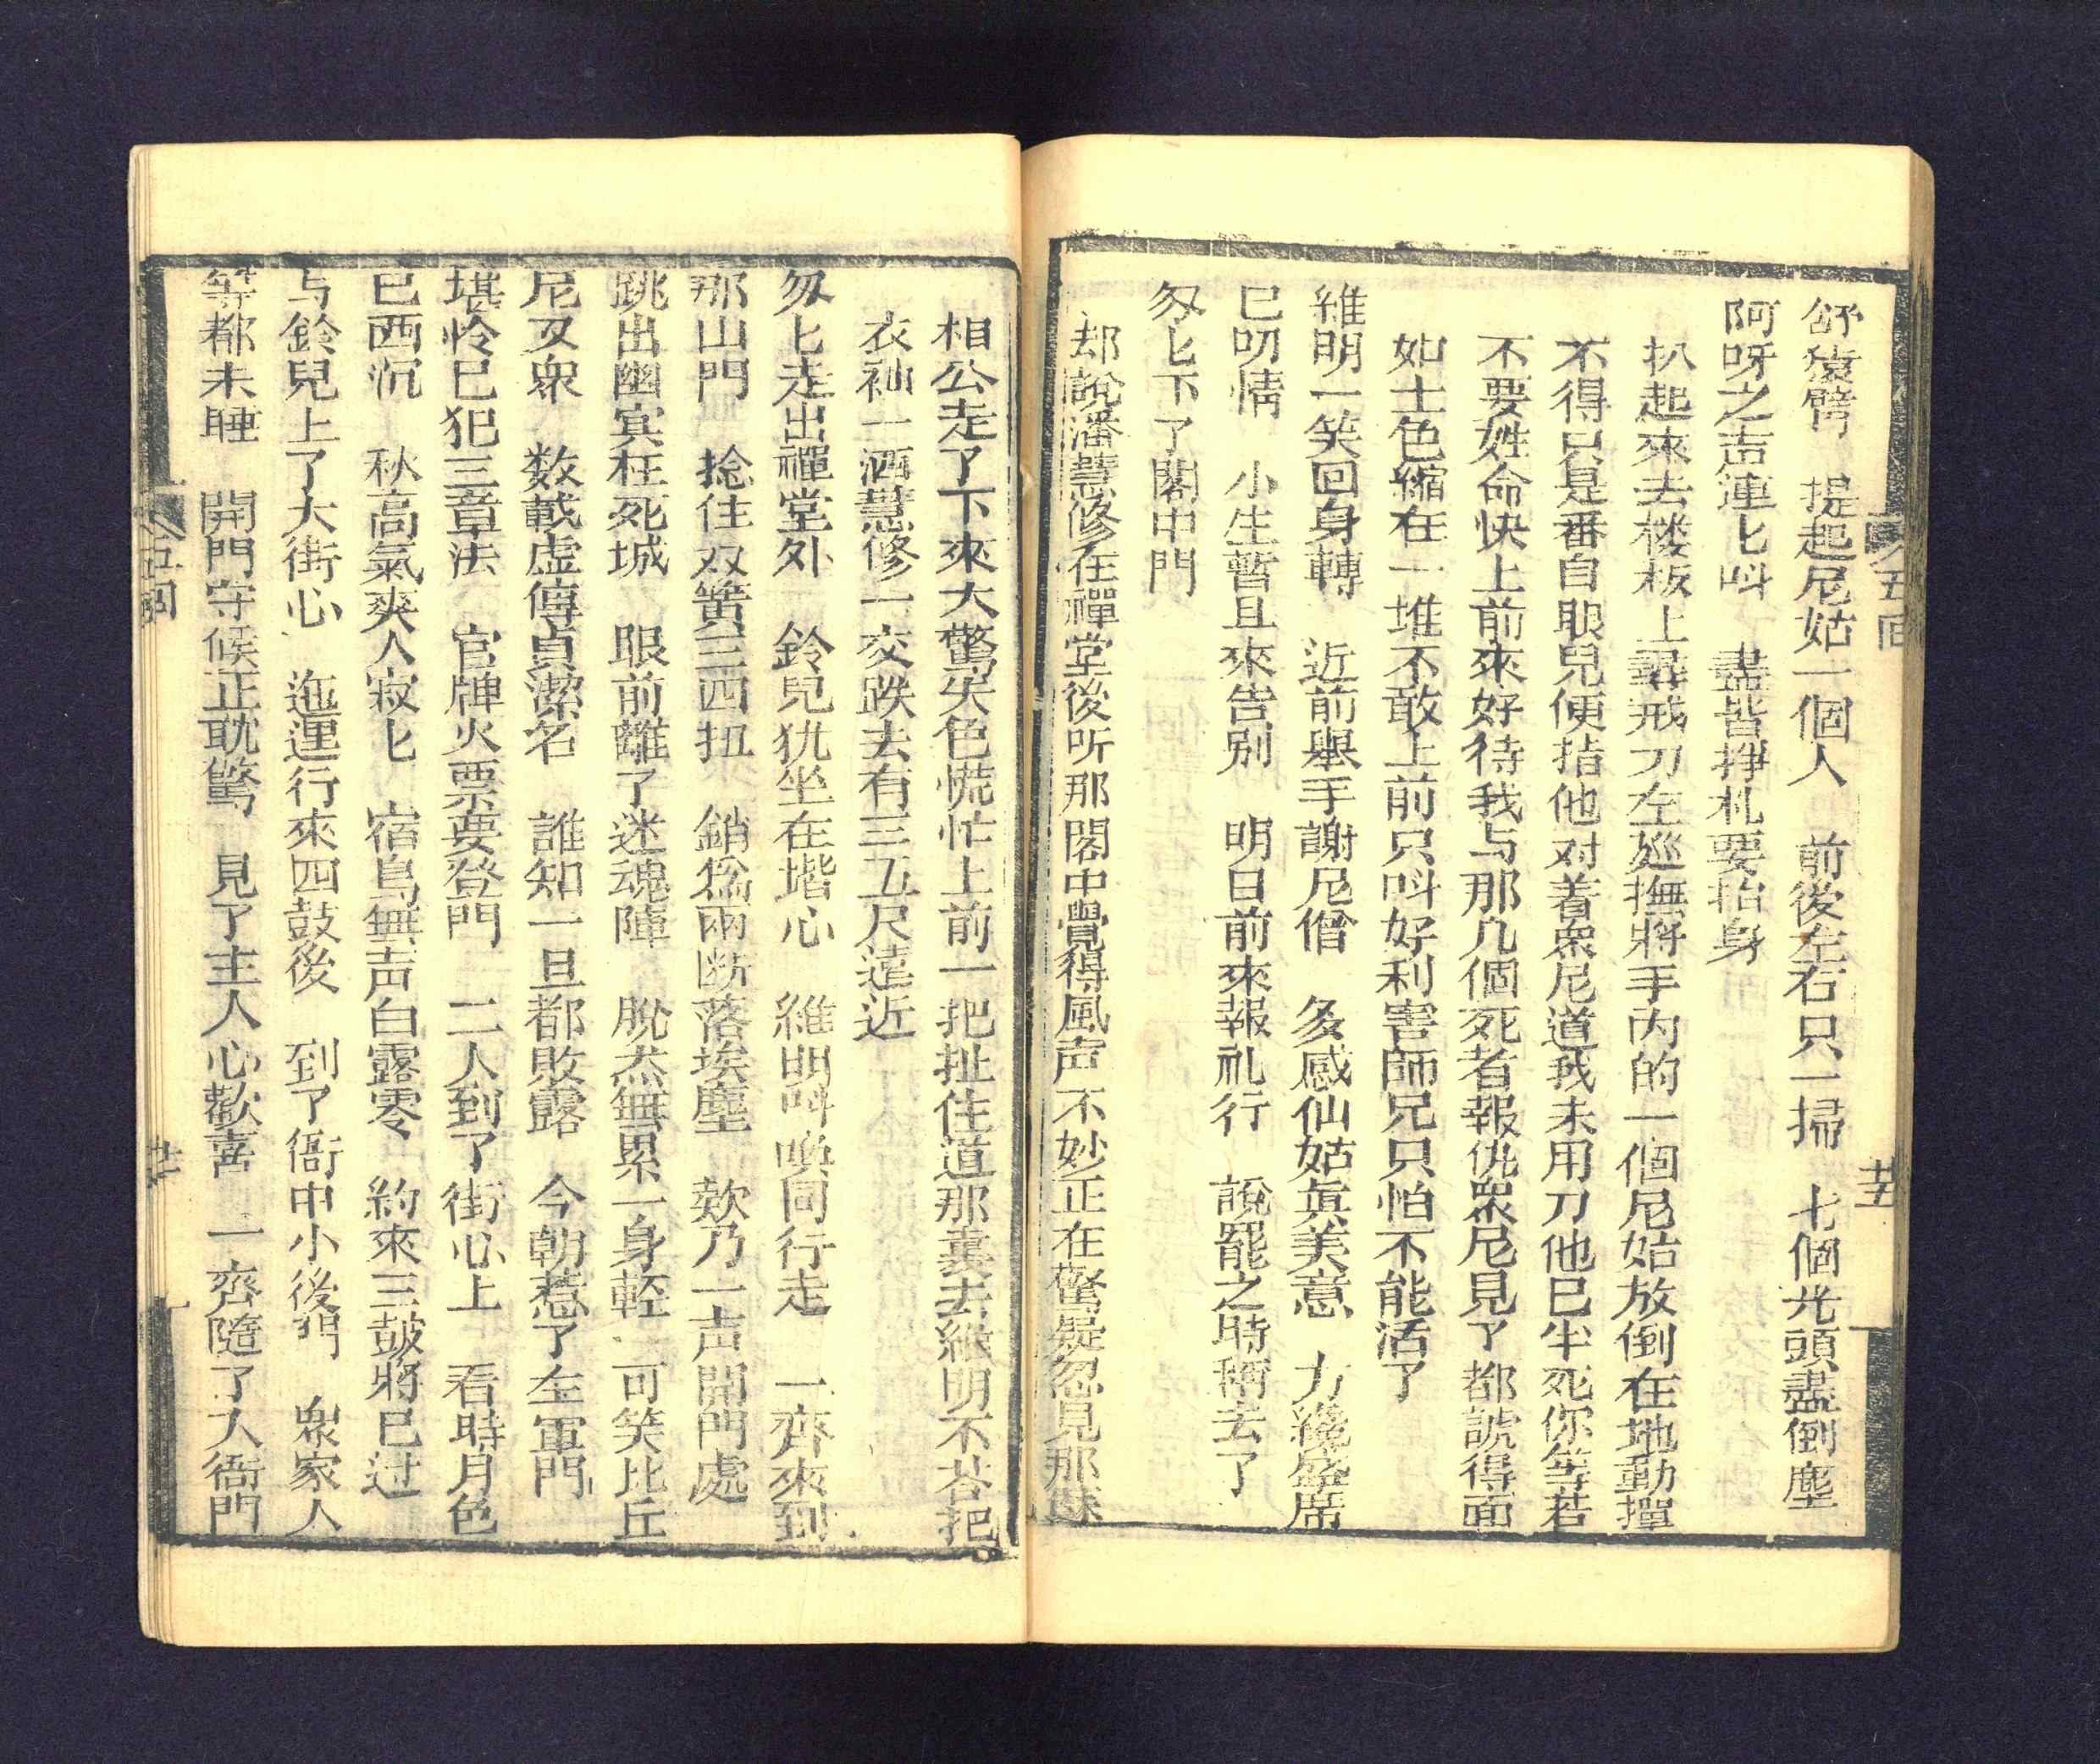 五回
廿五
舒猿臂　提起尼姑一個人　前後左右只一掃　七個光頭盡倒塵
阿呀之声連匕呌　盡皆掙札要抬身
扒起來去楼板上尋戒刀左廵撫將手内的一個尼姑放倒在地動撣
不得只是番自眼兒便指他对着衆尼道我未用刀他已半死你等若
不要姓命快上前來好待我与那几個死者報仇衆尼見了都諕得面
如土色縮在一堆不敢上前只呌好利害師兄只怕不能活了
維明一笑回身轉　近前舉手謝尼僧　多感仙姑眞美意　力絶盛席
已叨情　小生暫且來告别　明日前來報礼行　說罷之時稱去了
匆匕下了閣中門
却說潘慧修在禪堂後听那閣中覺得風声不妙正在驚疑忽見那
相公走了下來大驚失色慌忙上前一把扯住道那裏去維明不荅把
衣袖一洒慧修一交跌去有三五尺遠近
匆匕走出禪堂外　鈴兒犹坐在堦心　維明呌喚同行走　一齊來到
那山門　捻住双簧三四扭　銷爲兩断落埃塵　欵乃一声開門處
跳出幽㝠枉死城　眼前離了迷魂陣　脫然無累一身輕　可笑比丘
尼及衆　数載虚傳貞潔名　誰知一旦都敗露　今朝惹了左軍門
堪怜已犯三章法　官牌火票要登門　二人到了街心上　看時月色
已西沉　秋高氣爽人寂匕　宿鳥無声白露零　約來三鼓將已过
与鈴兒上了大街心　迤逦行來四鼓後　到了衙中小後門　衆家人
等都未睡　開門守候正躭驚　見了主人心歡喜　一齊隨了入衙門
五囬